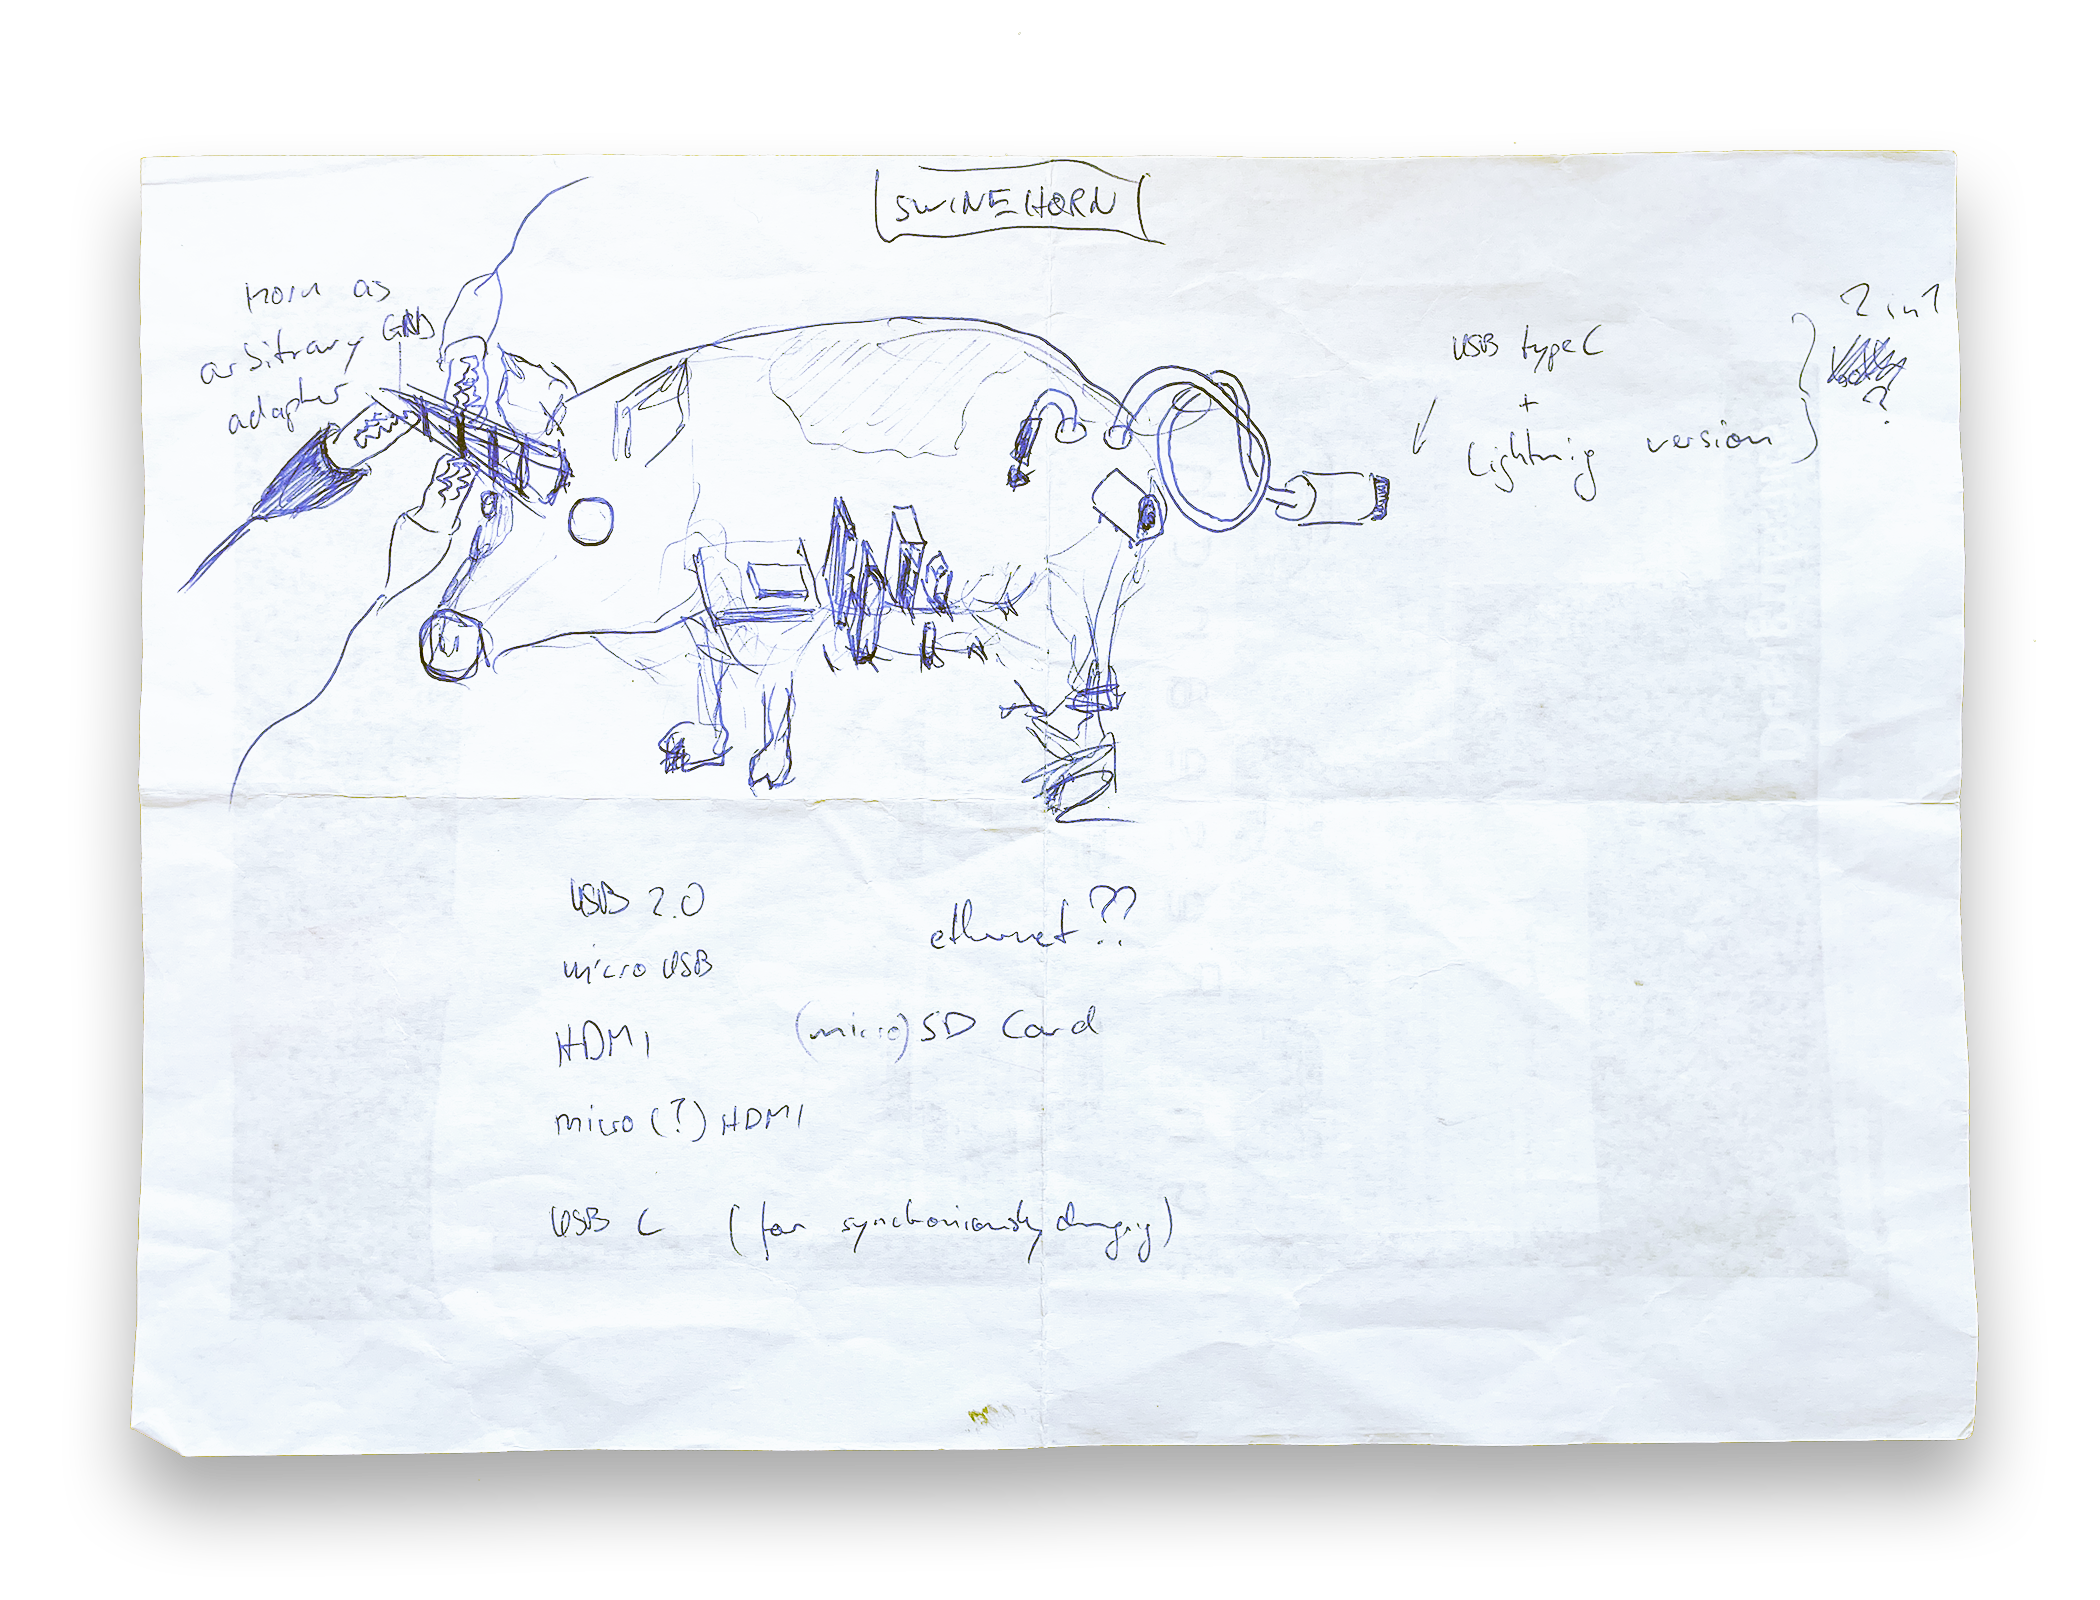 SWINEHORN
Horn as
arbitrary GND
adapter
USB type C
+
Lightnig version
2 in 1
?
USB 2.0
ethernet??
micro USB
HDMI
(micro) SD Card
micro (?) HDMI
USB C (for